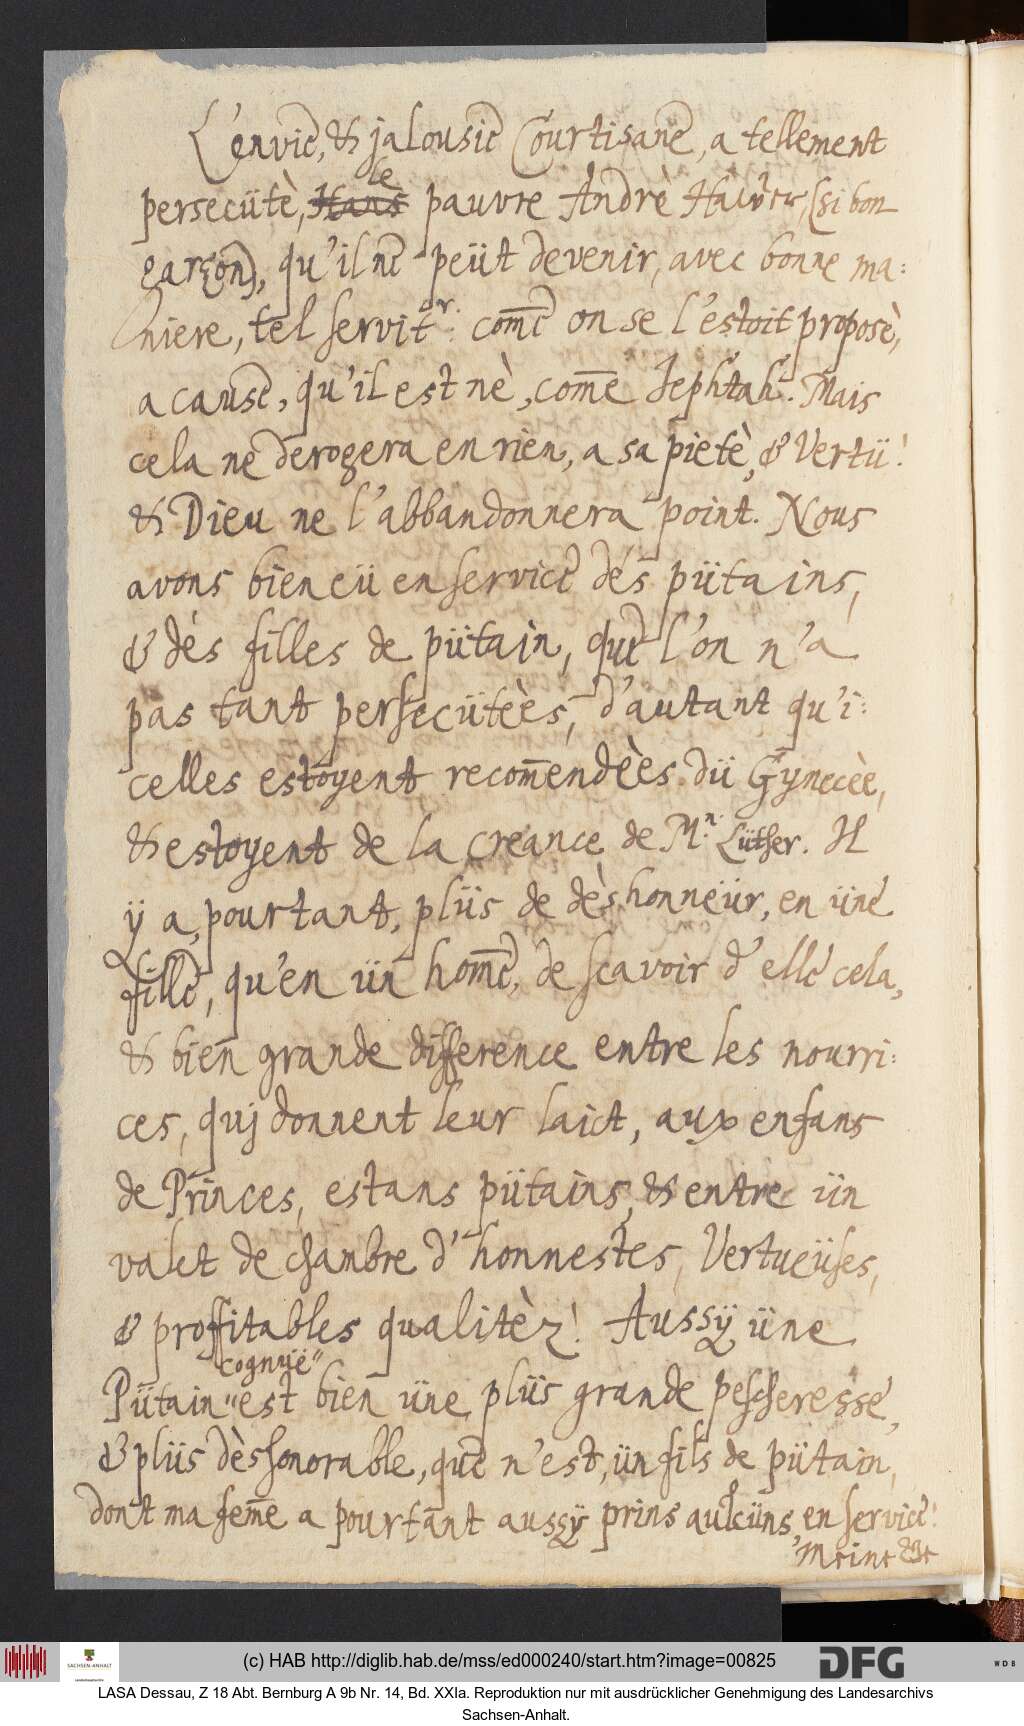 L'envie, & jalousie Courtisane, a tellement
persecütè, Hans le pauvre Andrè Hawer, (si bon
garçon), qu'il ne peüt devenir, avec bonne ma:
niere, tel servit.r: com̄e on se l'estoit proposè,
a cause, qu'il est nè, com̄e Jephtah. Mais
cela ne derogera en rien, a sa pietè, & Vertü!
& Dieu ne l'abbandonnera point. Nous
avons bien eü en service dés pütains,
& dés filles de pütain, que l'on n'a
pas tant persecütèes, d'autant qu'i:
celles estoyent recom̄endèes dü Gynecèe,
& estoyent de la creance de M.r Lüther. Il
ÿ a, pourtant, plüs de dèshonneür, en üne
fille, qu'en ün hom̄e, de scavoir d'elle cela,
& bien grande difference entre les nourri:
ces, quj donnent leur laict, aux enfans
de Princes, estans pütains, & entre ün
valet de chambre d'honnestes, Vertueüses,
& proffitables qualitèz! Aussÿ üne
cognuë"
Pütain "est bien üne plüs grande pescheresse,
& plüs dèshonorable, que n'est, ün fils de pütain,
dont ma fem̄e a pourtant aussÿ prins aulcüns, en service!
Meine
(c) HAB http://diglib.hab.de/mss/ed000240/start.htm?image=00825
SACHSEN-ANHALT
DFG
WDB
LASA Dessau, Z 18 Abt. Bernburg A 9b Nr. 14, Bd. XXIa. Reproduktion nur mit ausdrücklicher Genehmigung des Landesarchivs
Sachsen-Anhalt.